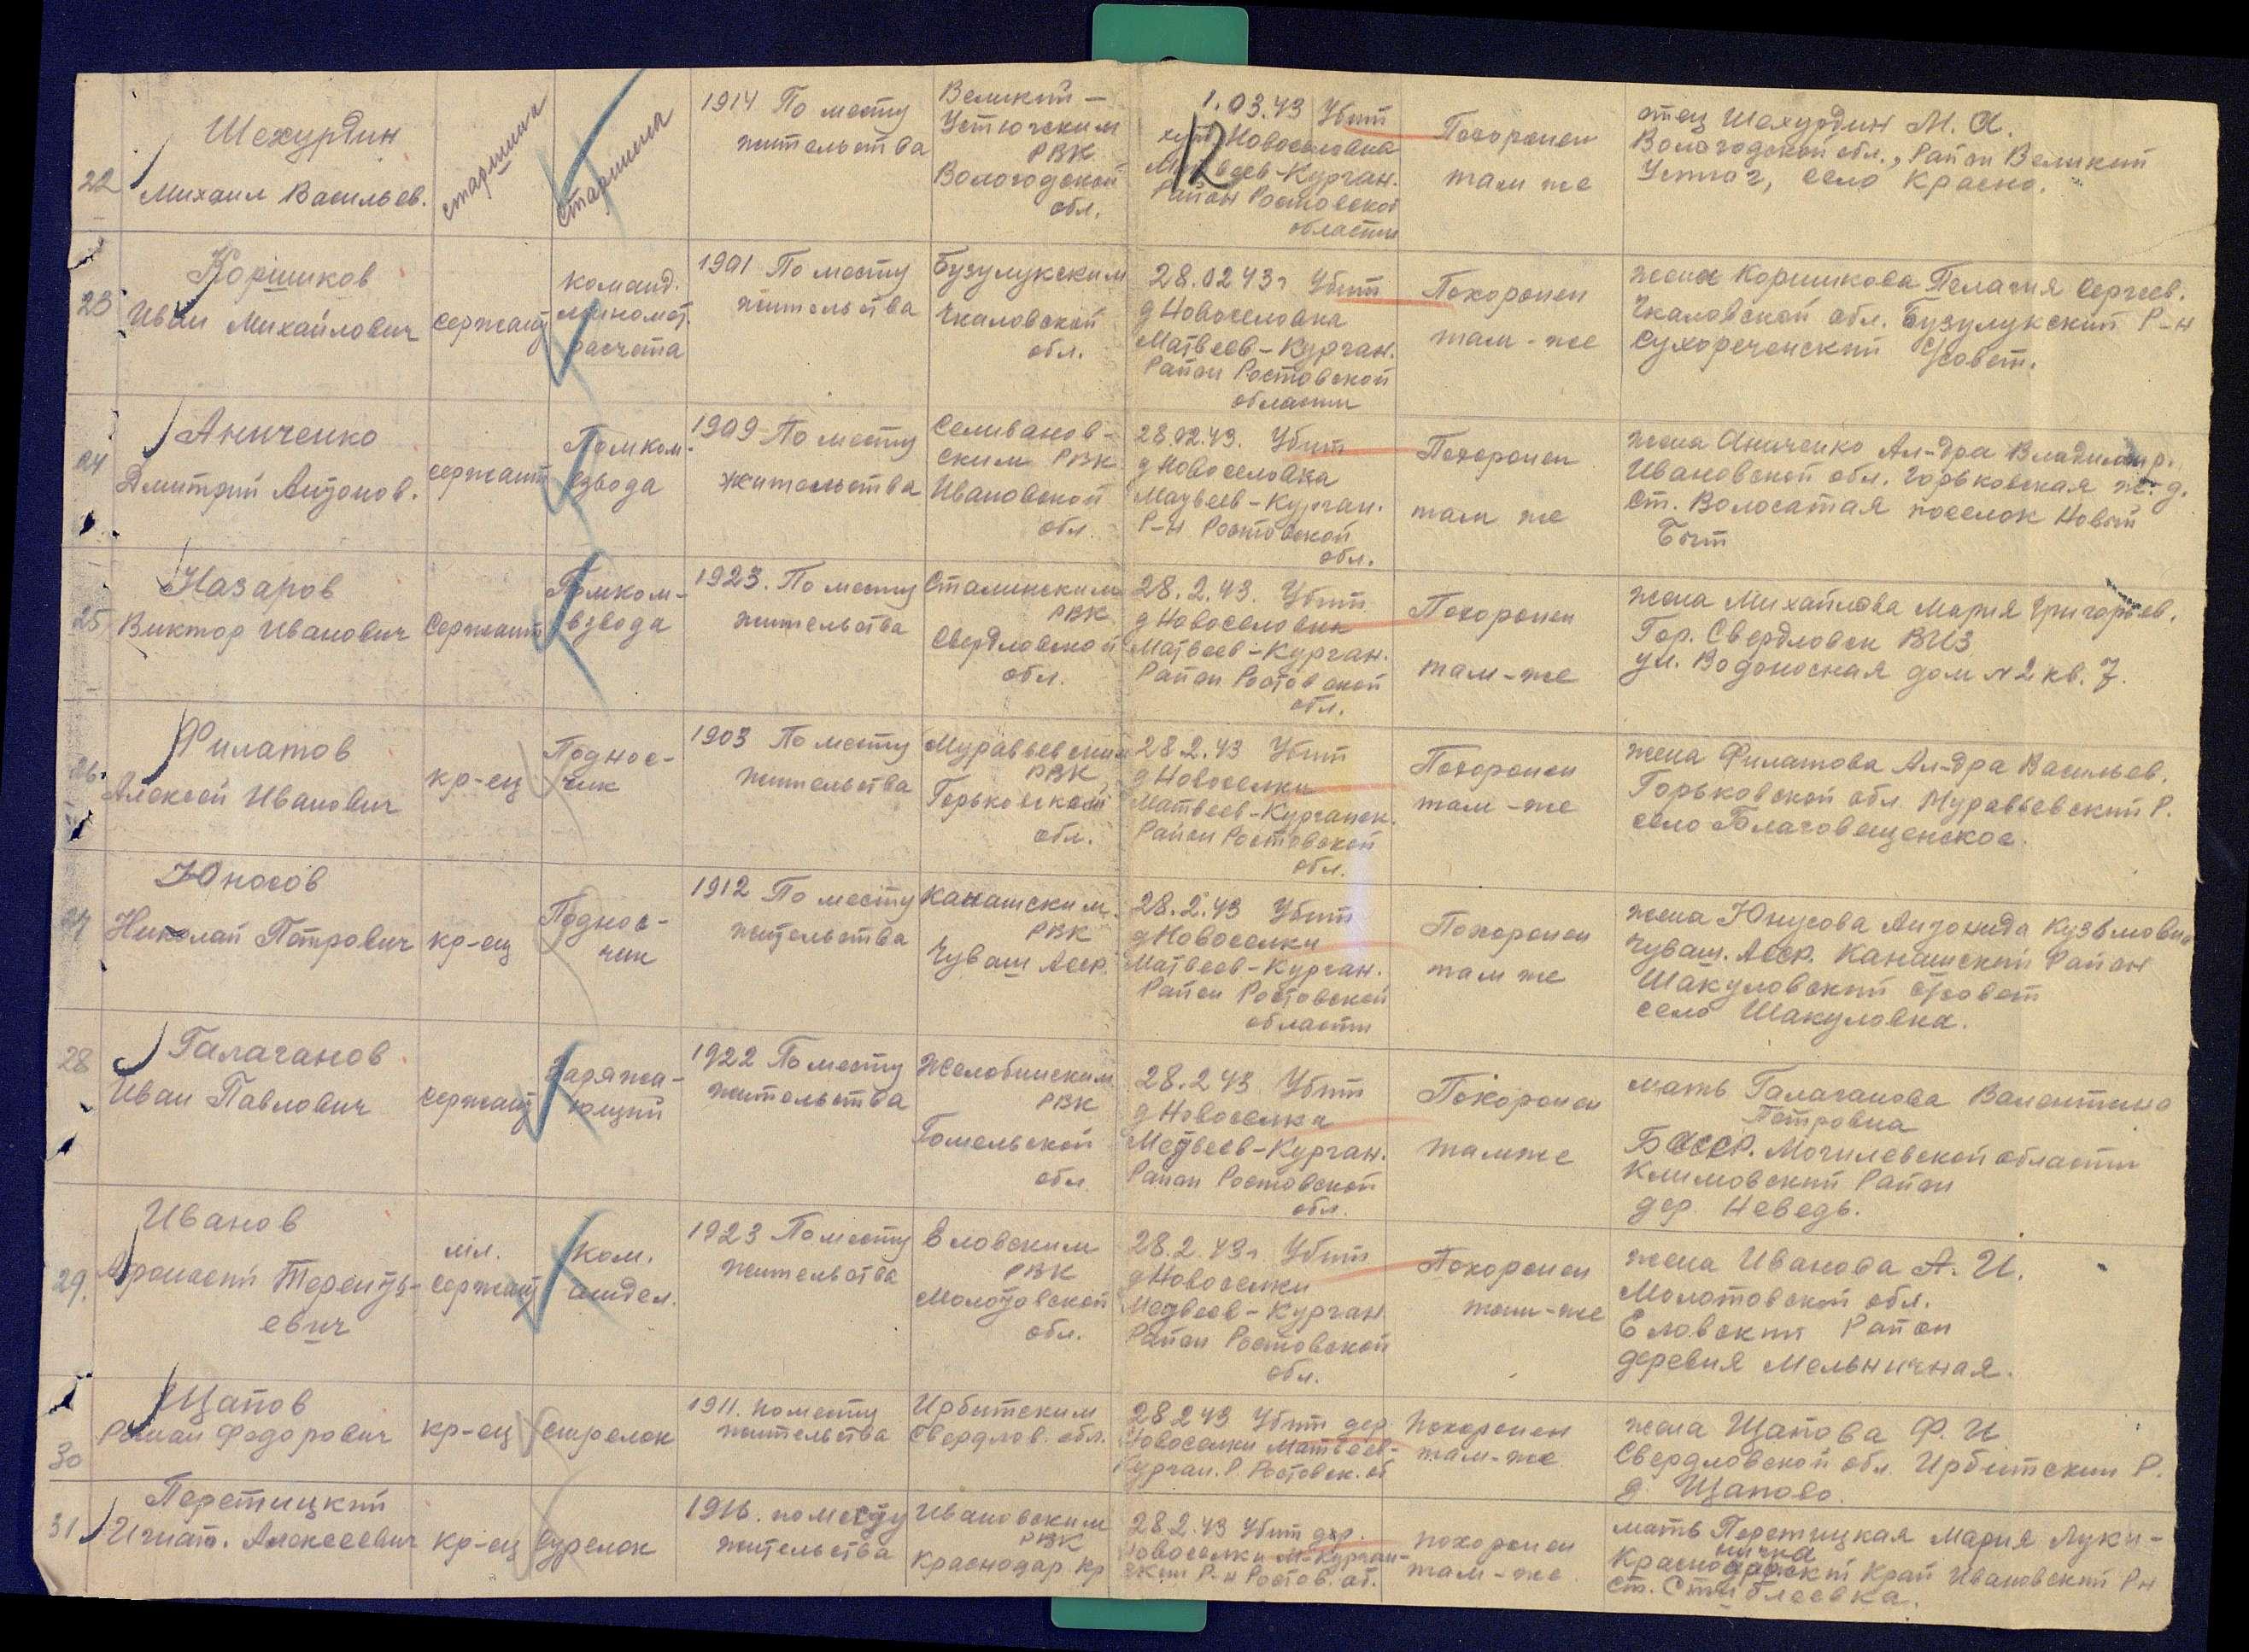 22
Шехурдин
Михаил Васильев.
старшина
старшина
1914 По месту
жительства
Великий-
Устюгским
РВК
Вологодской
обл.
1.03.43 Убит
12
хут. Новоселовка
Матвеев-Курган.
Район Ростовской
области
Похоронен
там же
отец Шехурдин М. А.
Вологодской обл., Район Великий
Устюг, село Красно.
23
Коршиков
Иван Михайлович
сержант
команд.
миномет.
расчета
1901 По месту
жительства
Бузулукским
Чкаловской
обл.
28.02 43г Убит
д Новоселовка
Матвеев-Курган.
Район Ростовской
области
Похоронен
там-же
жена Коршикова Пелагия Сергеев.
Чкаловской обл. Бузулукский Р-н
Сухореченский С/совет.
24
Аниченко
Дмитрий Антонов.
сержант
Помком.
взвода
1909 По месту
жительства
Селиванов-
ским РВК
Ивановской
обл.
28.02.43. Убит
д Новоселовка
Матвеев-Курган.
Р-н Ростовской
обл.
Похоронен
там же
жена Аниченко Ал-дра Владимир.
Ивановской обл. Горьковская ж.д.
ст. Волосатая поселок Новый
Быт
25
Назаров
Виктор Иванович
Сержант
Помком-
взвода
1923. По месту
жительства
Сталинским
РВК
Свердловской
обл.
28.2.43. Убит
д Новоселовки
Матвеев-Курган.
Район Ростовской
обл.
Похоронен
там-же
жена Михайлова Мария Григорьев.
Гор. Свердловск ВИЗ
ул. Водоносная дом №2 кв. 7.
26.
Филатов
Алексей Иванович
кр-ец
Поднос-
чик
1903 По месту
жительства
Муравьевским
РВК
Горьковской
обл.
28.2.43 Убит
д Новоселки
Матвеев-Курганск.
Район Ростовской
обл.
Похоронен
там-же
жена Филатова Ал-дра Васильев.
Горьковской обл. Муравьевский Р.
село Благовещенское.
27
Юносов
Николай Петрович
кр-ец
Поднос-
чик
1912 По месту
жительства
Канашским
РВК
Чуваш Асср.
28.2.43 Убит
д Новоселки
Матвеев-Курган.
Район Ростовской
области
Похоронен
там же
жена Юнусова Антонида Кузьмовна
Чуваш. Асср. Канашский Район
Шакуловский с/совет
село Шакуловка.
28
Галаганов
Иван Павлович
сержант
Заряжа-
ющий
1922 По месту
жительства
Жлобинским
РВК
Гомельской
обл
28.2 43 Убит
д Новоселка
Матвеев-Курган.
Район Ростовской
обл.
Похоронен
там же
мать Галаганова Валентина
Петровна
БССР. Могилевской области
Климовский Район
дер. Неведь.
29.
Иванов
Терентьевич
мл.
сержант
Ком.
отдел.
1923 По месту
жительства
Еловским
РВК
Молотовской
обл.
28.2.43г Убит
д Новоселки
Матвеев-Курган
Район Ростовской
обл.
Похоронен
там-же
жена Иванова А. И.
Молотовской обл.
Еловский Район
деревня Мельничная.
30
Щапов
Роман Федорович
кр-ец
стрелок
1911. по месту
жительства
Ирбитским
Свердлов. обл.
28 2 43 Убит дер
Новоселки Матвеев-
Курган. Р. Ростовск. об
похоронен
там-же
жена Щапова Ф. И
Свердловской обл. Ирбитский Р.
д. Щапово.
31
Перетицкий
Игнат. Алексеевич
кр-ец
стрелок
1916. по месту
жительства
Ивановским
РВК
Краснодар. кр
28.2.43 Убит дер.
Новоселки М-Курган-
ский Р-н Ростов. об.
похоронен
там-же
мать Перетицкая Мария Луки-
нична
Краснодарский Край Ивановский Рн
ст. Стеблеевка.